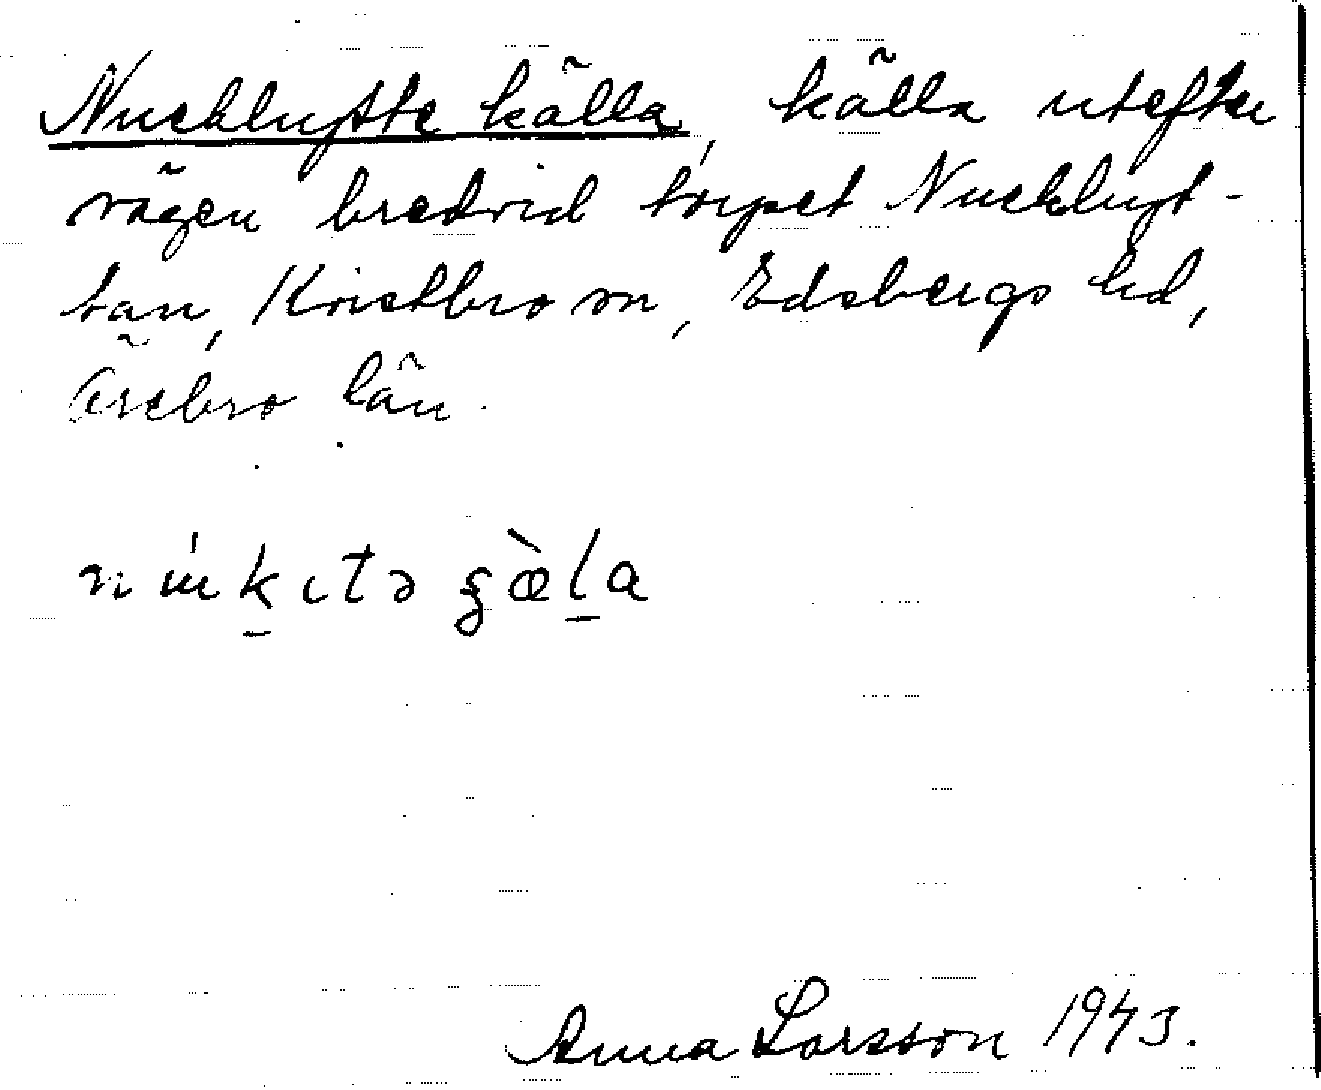 Nucklufte källa, källa utefter
vägen bredvid torpet Nuckluf-
tan, Knistbro sn, Edsbergs hd,
Örebro län.
Anna Larsson 1943.